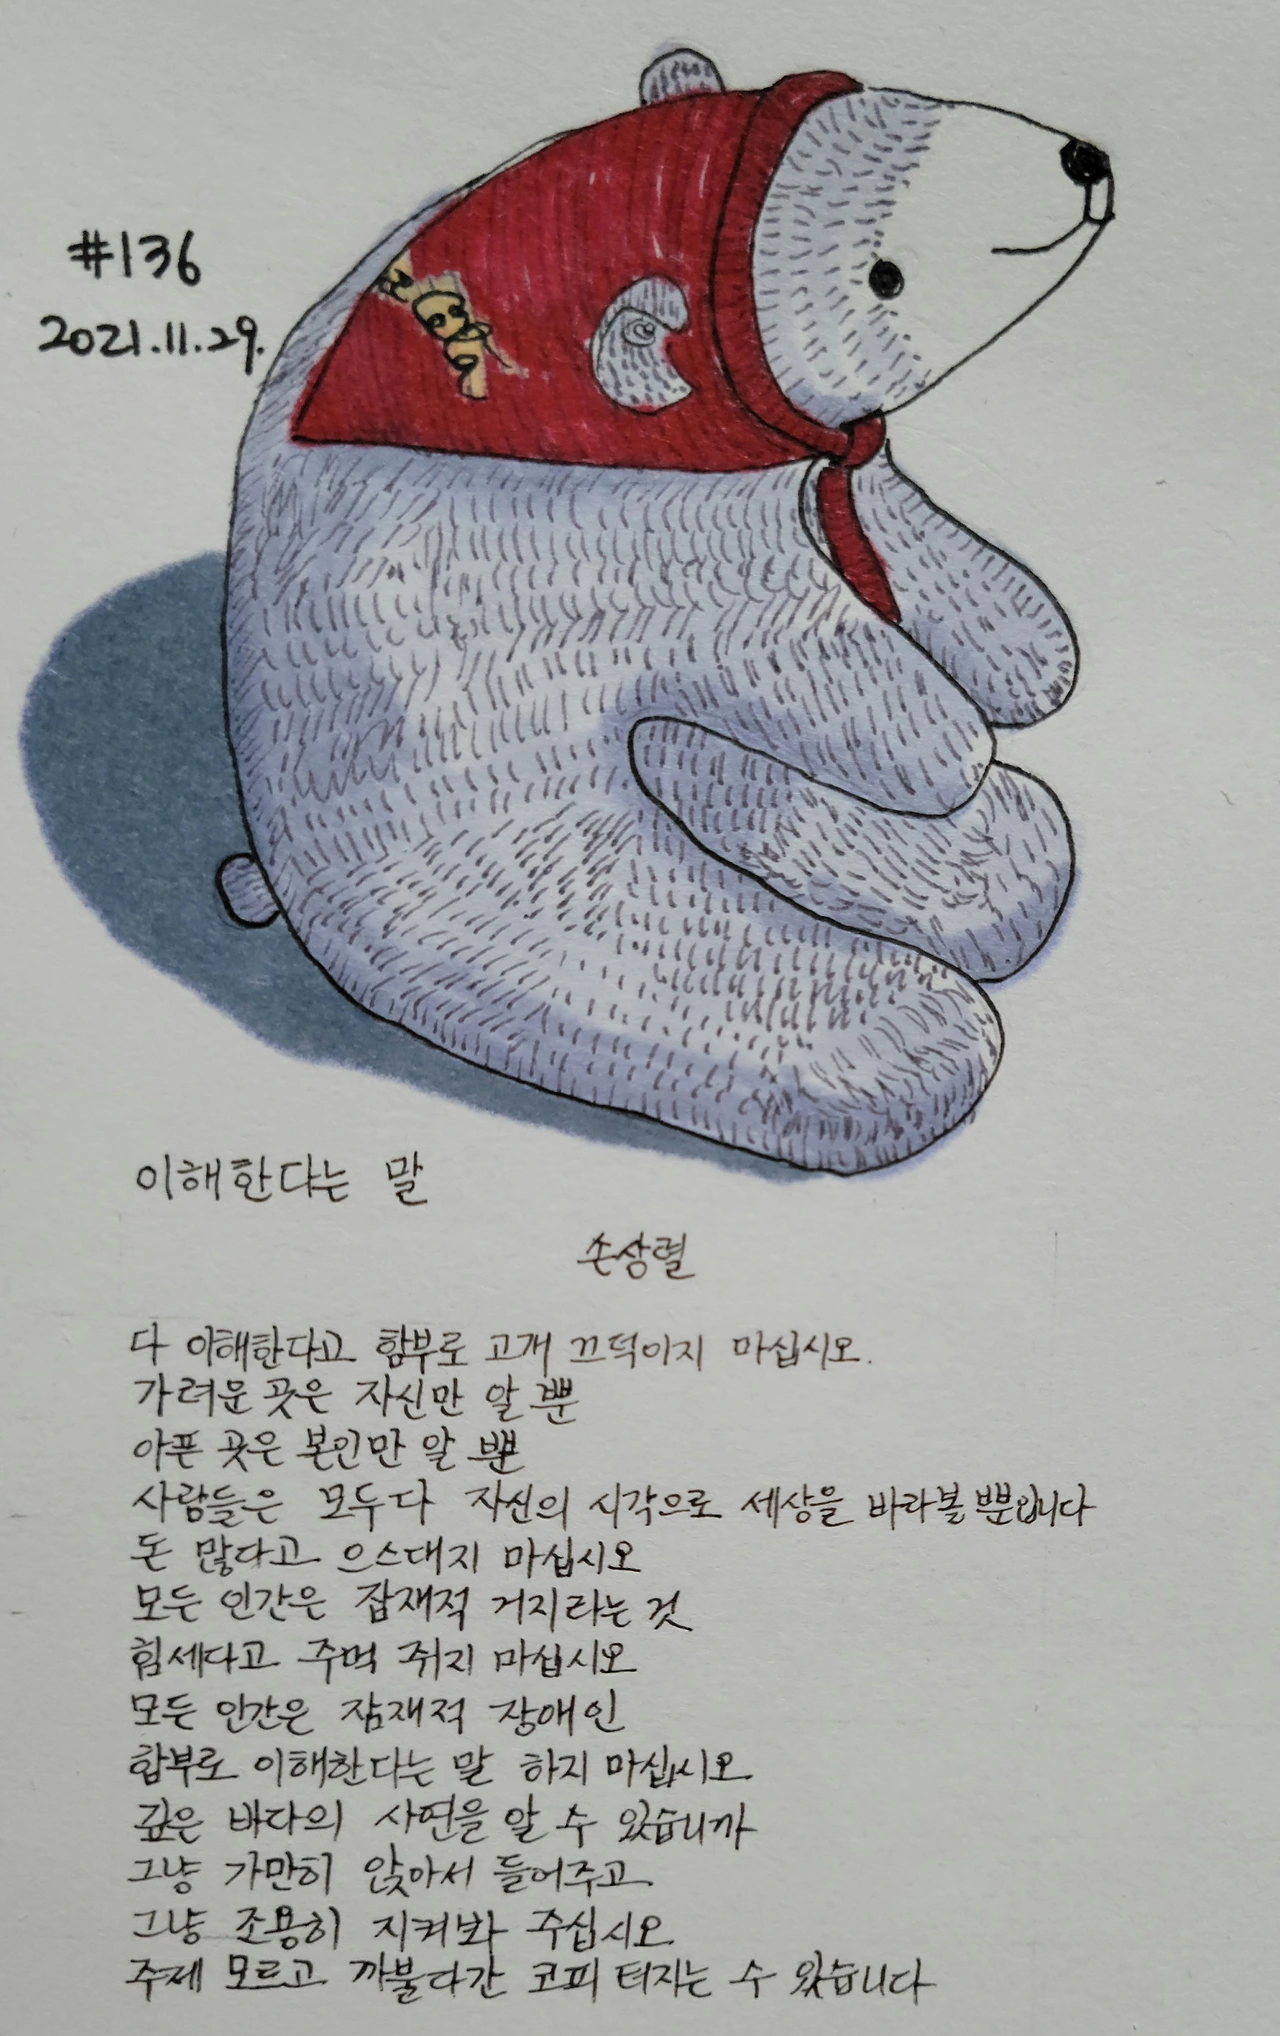 #136
2021.11.29.
이해한다는 말
손상렬
다 이해한다고 함부로 고개 끄덕이지 마십시오.
가려운 곳은 자신만 알 뿐
아픈 곳은 본인만 알 뿐
사람들은 모두다 자신의 시각으로 세상을 바라볼 뿐입니다
돈 많다고 으스대지 마십시오
모든 인간은 잠재적 거지라는 것
힘세다고 주먹 쥐지 마십시오
모든 인간은 잠재적 장애인
함부로 이해한다는 말 하지 마십시오
깊은 바다의 사연을 알 수 있습니까
그냥 가만히 앉아서 들어주고
그냥 조용히 지켜봐 주십시오
주제 모르고 까불다간 코피 터지는 수 있습니다